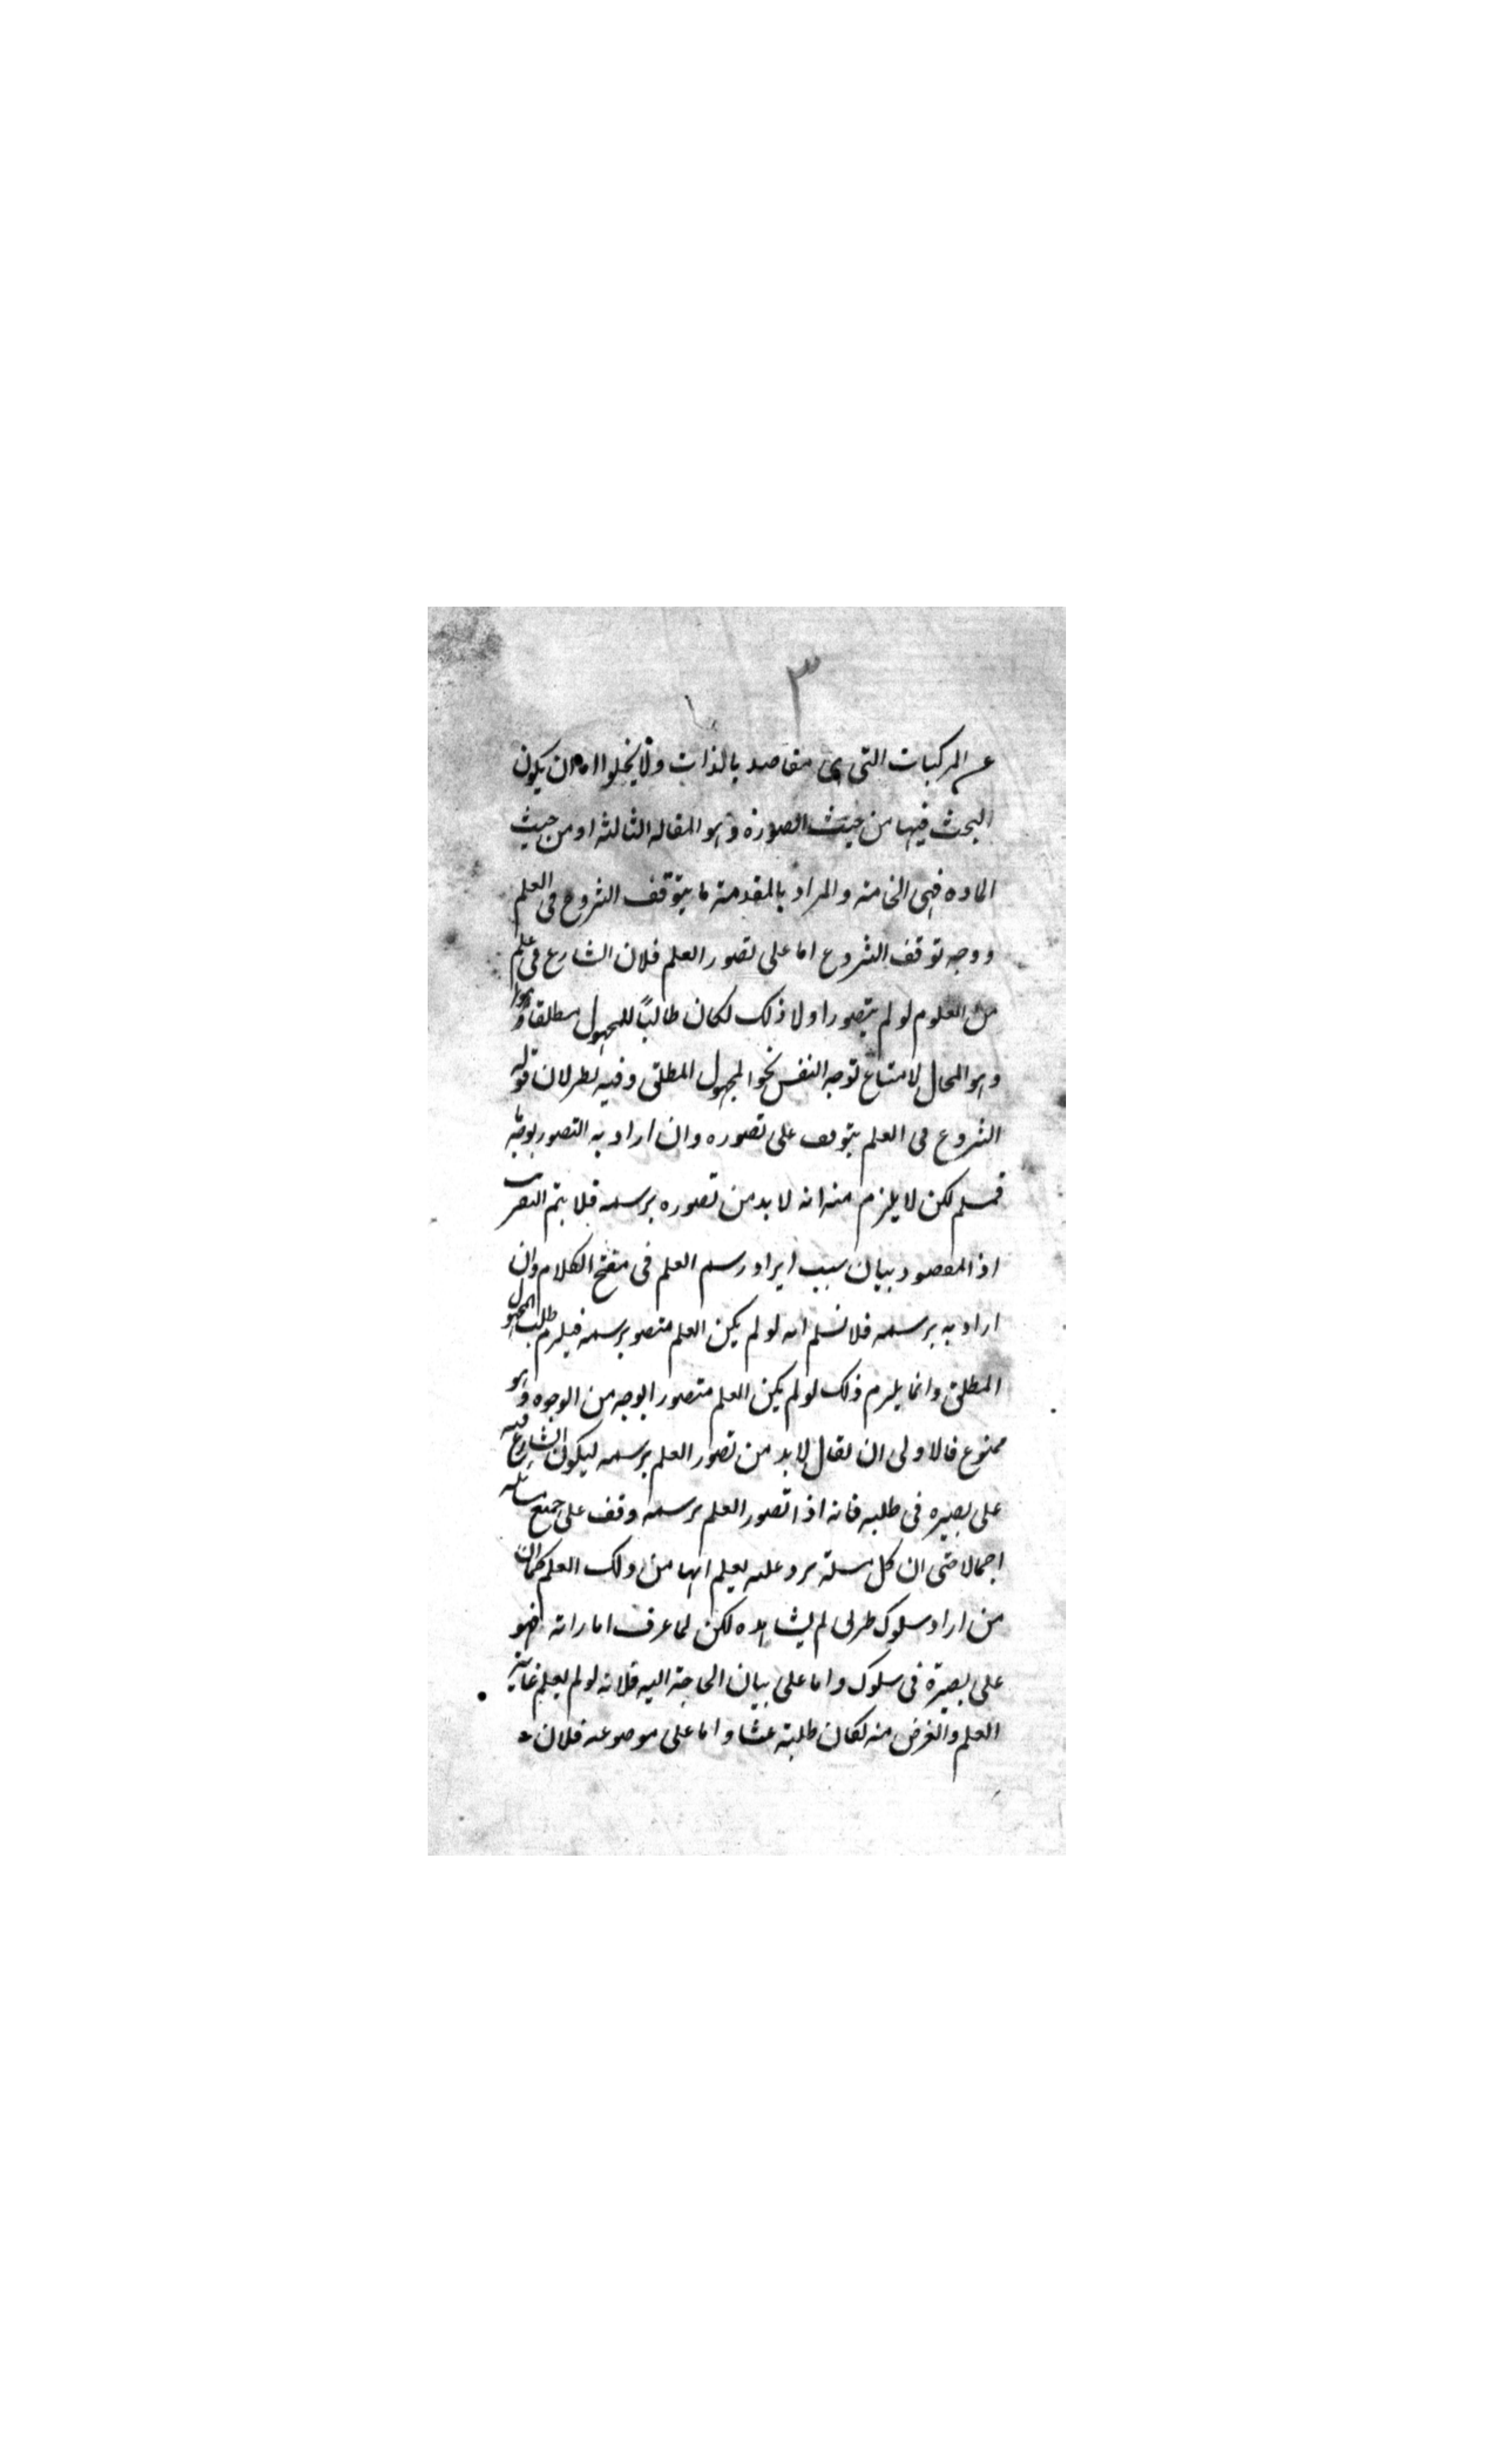 ٣
عن المركبات التى هى مقاصد بالذات ولا يخلوا اما ان يكون
البحث فيها من حيث الصورة وهو المقاله الثالثه او من حيث
الماده فهى الخامنه والمراد بالمقدمة ما يتوقف الشروع فى العلم
ووجه توقف الشروع اما على تصور العلم فلان الشارع فى علم
من العلوم لو لم يتصور اولا ذلك لكان طالبًا للمجهول مطلقا
وهو المحال لامتناع توجه النفس نحو المجهول المطلق وفيه نظر لان قوله
الشروع فى العلم يتوقف على تصوره وان اراد به التصور بوجه
فمسلم لكن لا يلزم منه انه لا بد من تصوره برسمه فلا يتم التقريب
اذ المقصود بيان سبب ايراد رسم العلم فى مفتح الكلام وان
اراد به برسمه فلا نسلم انه لو لم يكن العلم متصور برسمه فيلزم طلب المجهول
المطلق وانما يلزم ذلك لو لم يكن العلم متصورا بوجه من الوجوه وهو
ممنوع فالاولى ان يقال لا بد من تصور العلم برسمه ليكون الشارع فيه
على بصيره فى طلبه فانه اذا تصور العلم برسمه وقف على جميع مسائله
اجمالا حتى ان كل مسئلة يرد عليه يعلم انها من ذلك العلم كما ان
من اراد سلوك طريق لم يشاهده لكن لما عرف اماراته فهو
على بصيرة فى سلوك واما على بيان الحاجة اليه فلانه لو لم يعلم غاية
العلم والغرض منه لكان طلبه عبثا واما على موضوعه فلان